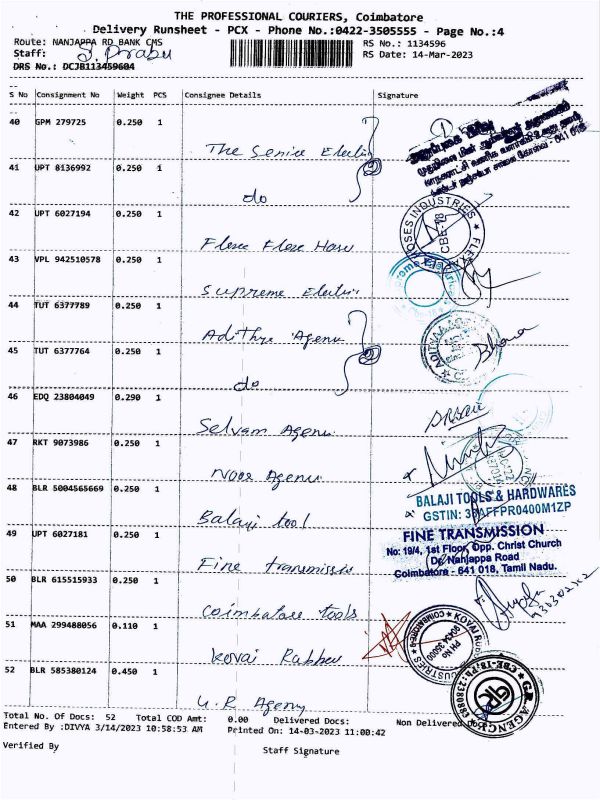 THE PROFESSIONAL COURIERS, Coimbatore
Delivery Runsheet - PCX - Phone No.:0422-3505555 - Page No.:4
Route: NANJAPPA RD BANK CMS
RS No.: 1134596
Staff: J. Prabu
RS Date: 14-Mar-2023
DRS No.: DCJB113459604
S No Consignment No Weight PCS Consignee Details Signature
40 GPM 279725 0.250 1 The Senice Electri
41 UPT 8136992 0.250 1 do
42 UPT 6027194 0.250 1 Flexe Flexe Hose
43 VPL 942510578 0.250 1 Supreme Electri
44 TUT 6377789 0.250 1 Adithya Agenu
45 TUT 6377764 0.250 1 do
46 EDQ 23804049 0.290 1 Selvam Agenu
47 RKT 9073986 0.250 1 Noor Agenu
48 BLR 5004565669 0.250 1 Balaji tool
49 UPT 6027181 0.250 1 Fine transmissis
50 BLR 615515933 0.250 1 Coimbatore tools
51 MAA 299488056 0.110 1 Kovai Rubber
52 BLR 585380124 0.450 1 U.R Agency
CBE-18
Bhara
BALAJI TOOLS & HARDWARES
GSTIN: 33AFFPR0400M1ZP
FINE TRANSMISSION
No: 19/4, 1st Floor, Opp. Christ Church
Dr. Nanjappa Road
Coimbatore - 641 018, Tamil Nadu.
Total No. Of Docs: 52 Total COD Amt: 0.00 Delivered Docs: Non Delivered Docs:
Entered By :DIVYA 3/14/2023 10:58:53 AM Printed On: 14-03-2023 11:00:42
Verified By
Staff Signature